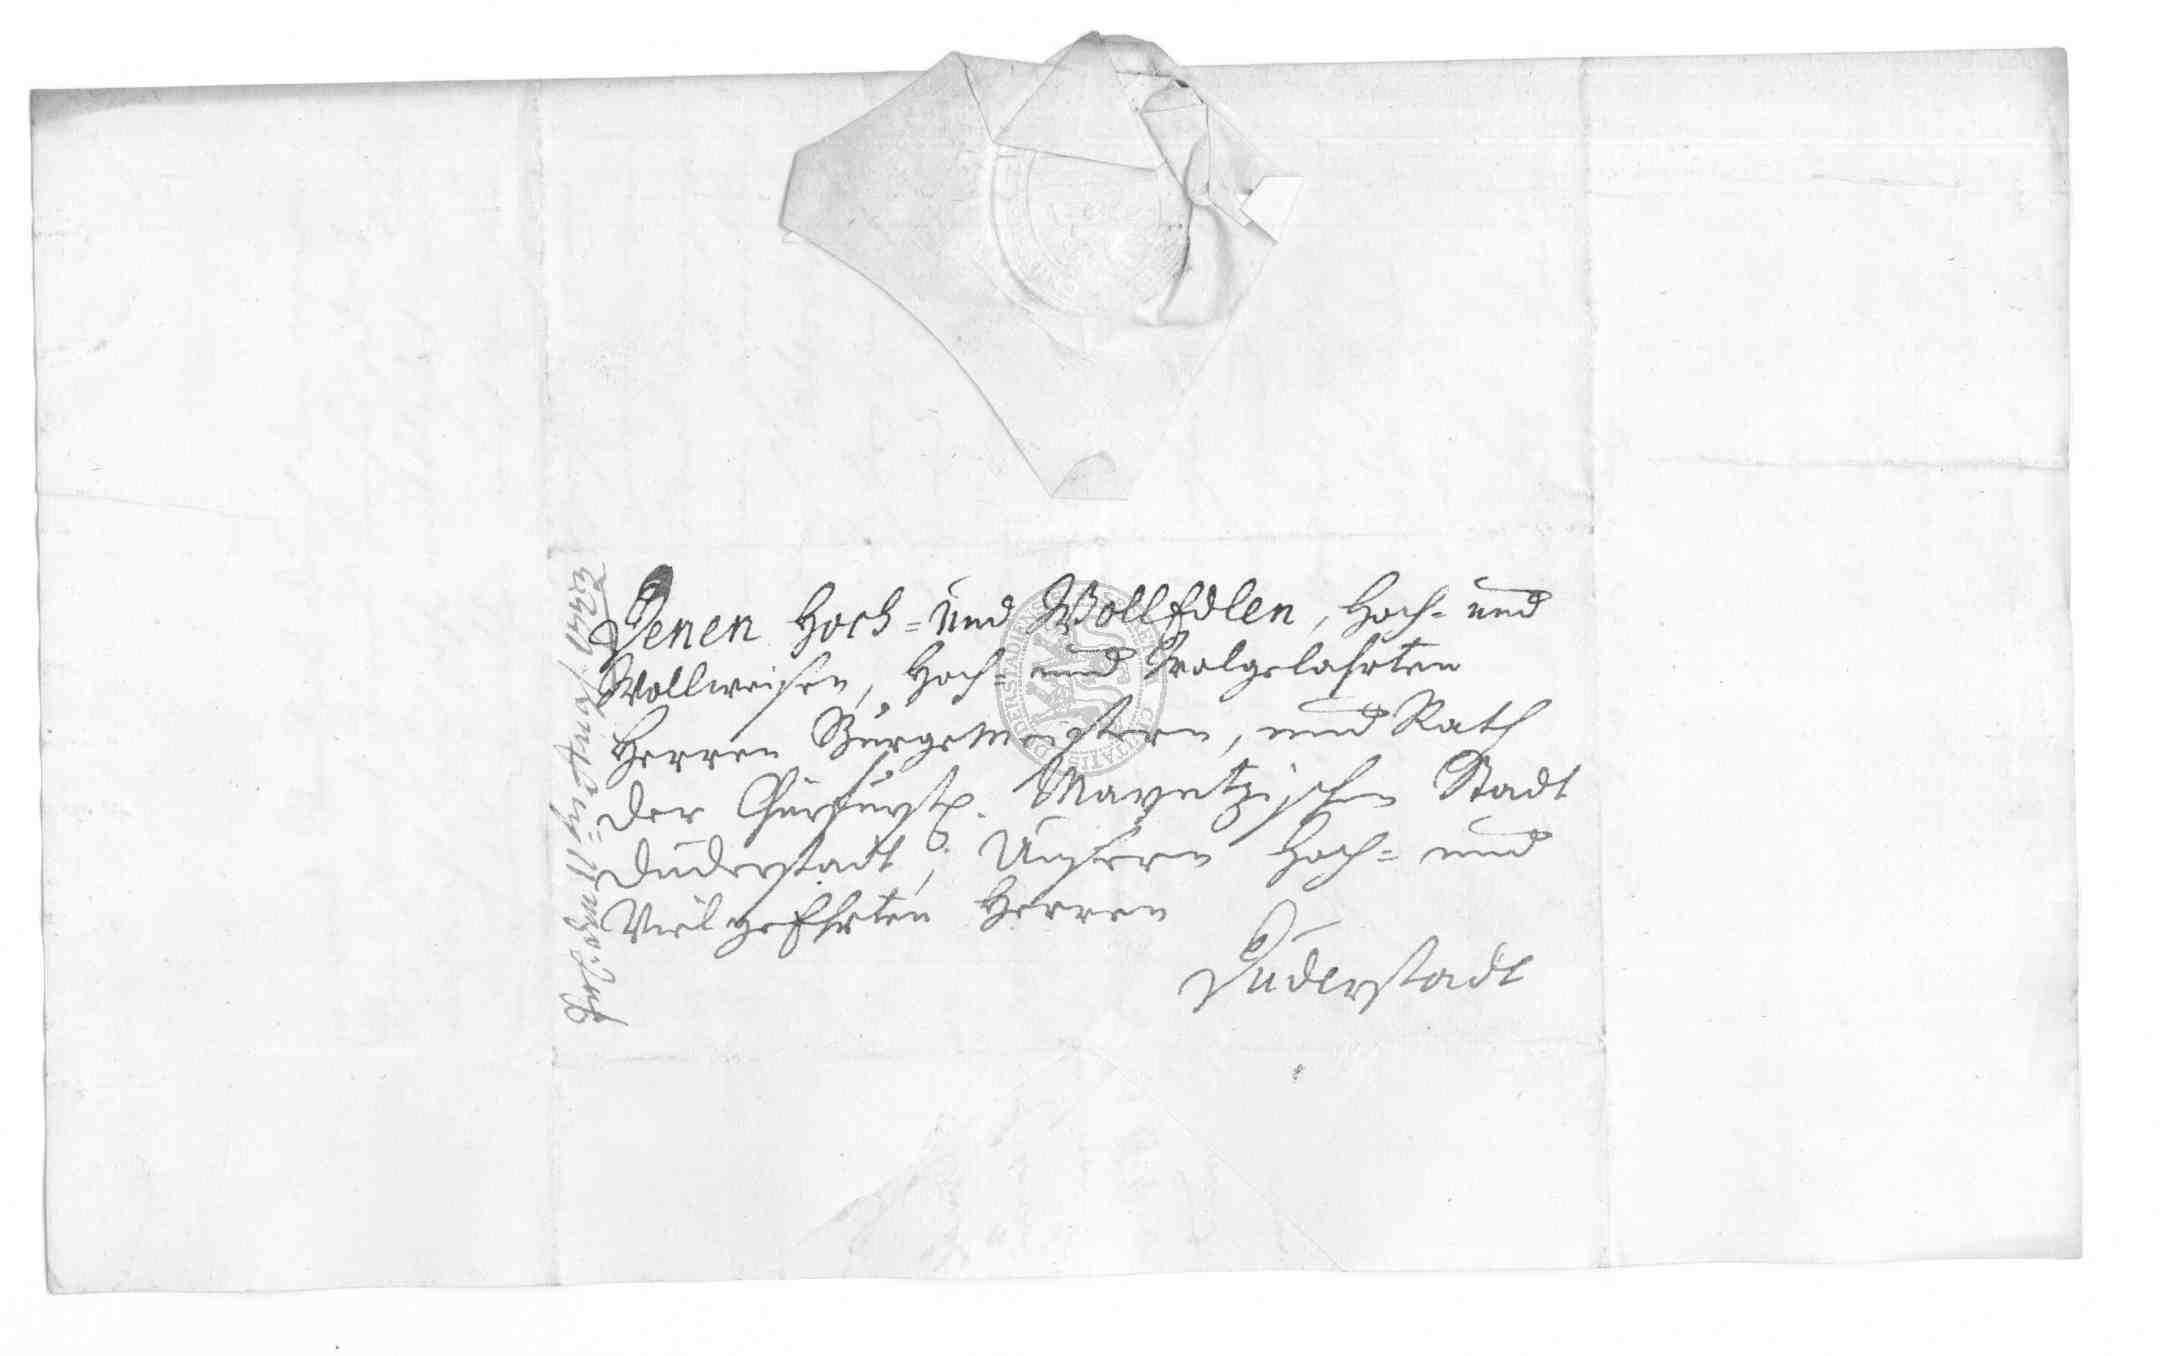 Denen Hoch= und WollEdlen, Hoch- und
Wollweisen, Hoch= und Wolgelahrten
Herren Bürgemeistern, und Rath
der Churfürstl. Mayntzischen Stadt
Duderstadt, Unsern Hoch= und
Viel geEhrten Herren
Duderstadt